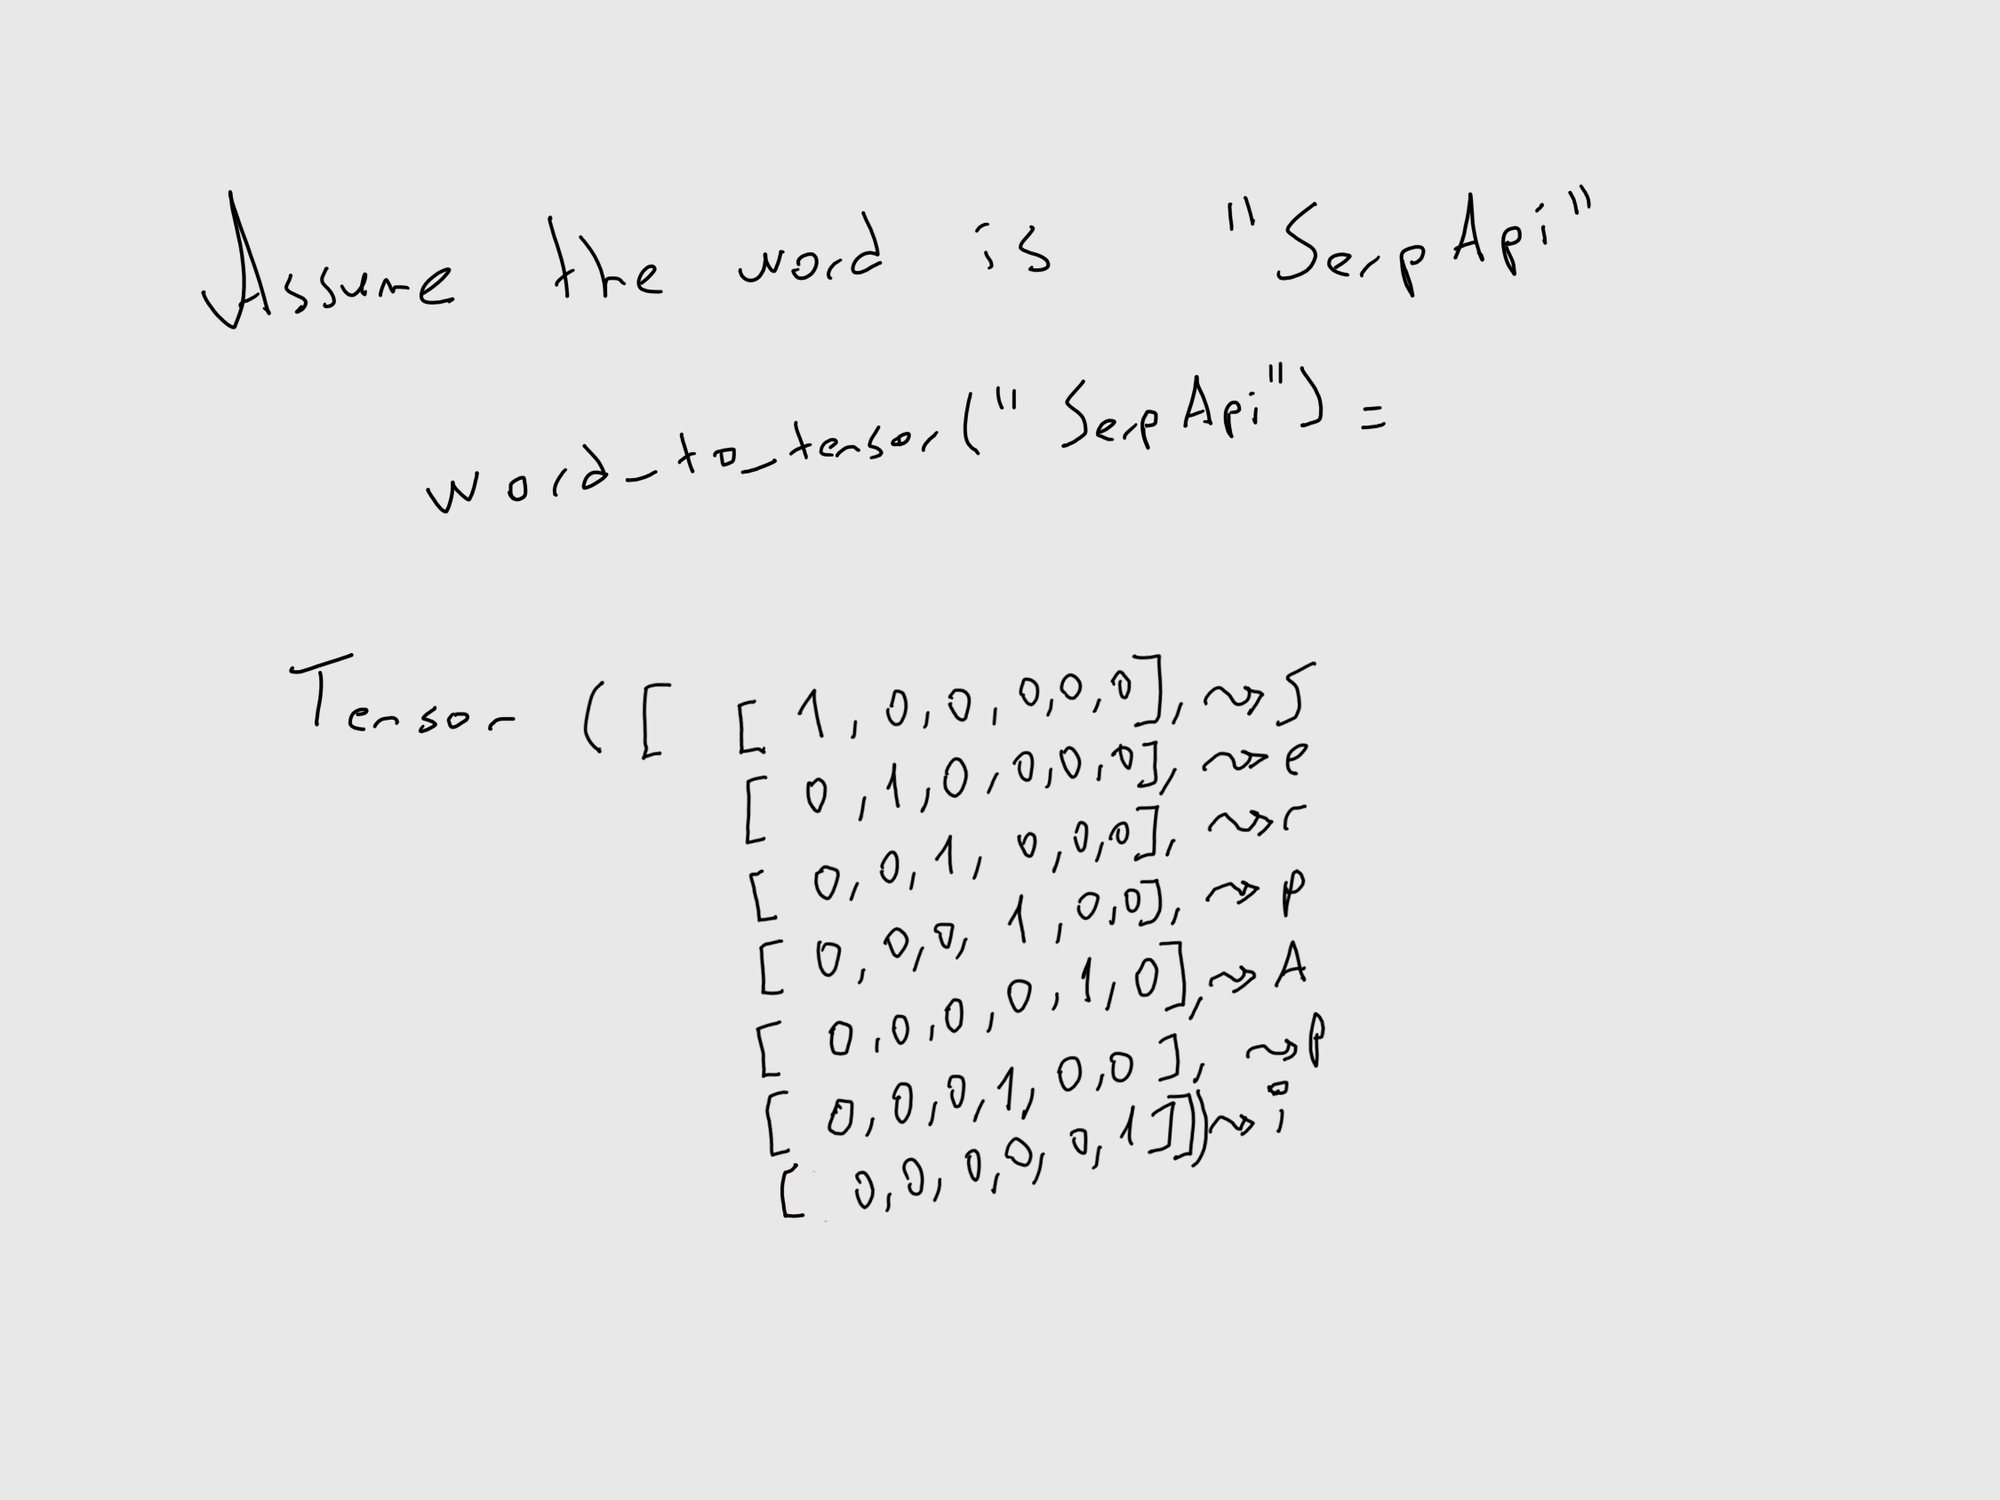 Assume the word is "SerpApi"
word_to_tensor("SerpApi") =
Tensor ([ [ 1, 0, 0, 0, 0, 0], ⇝ S
[ 0, 1, 0, 0, 0, 0], ⇝ e
[ 0, 0, 1, 0, 0, 0], ⇝ r
[ 0, 0, 0, 1, 0, 0], ⇝ p
[ 0, 0, 0, 0, 1, 0], ⇝ A
[ 0, 0, 0, 1, 0, 0 ], ⇝ p
[ 0, 0, 0, 0, 0, 1 ]]) ⇝ i